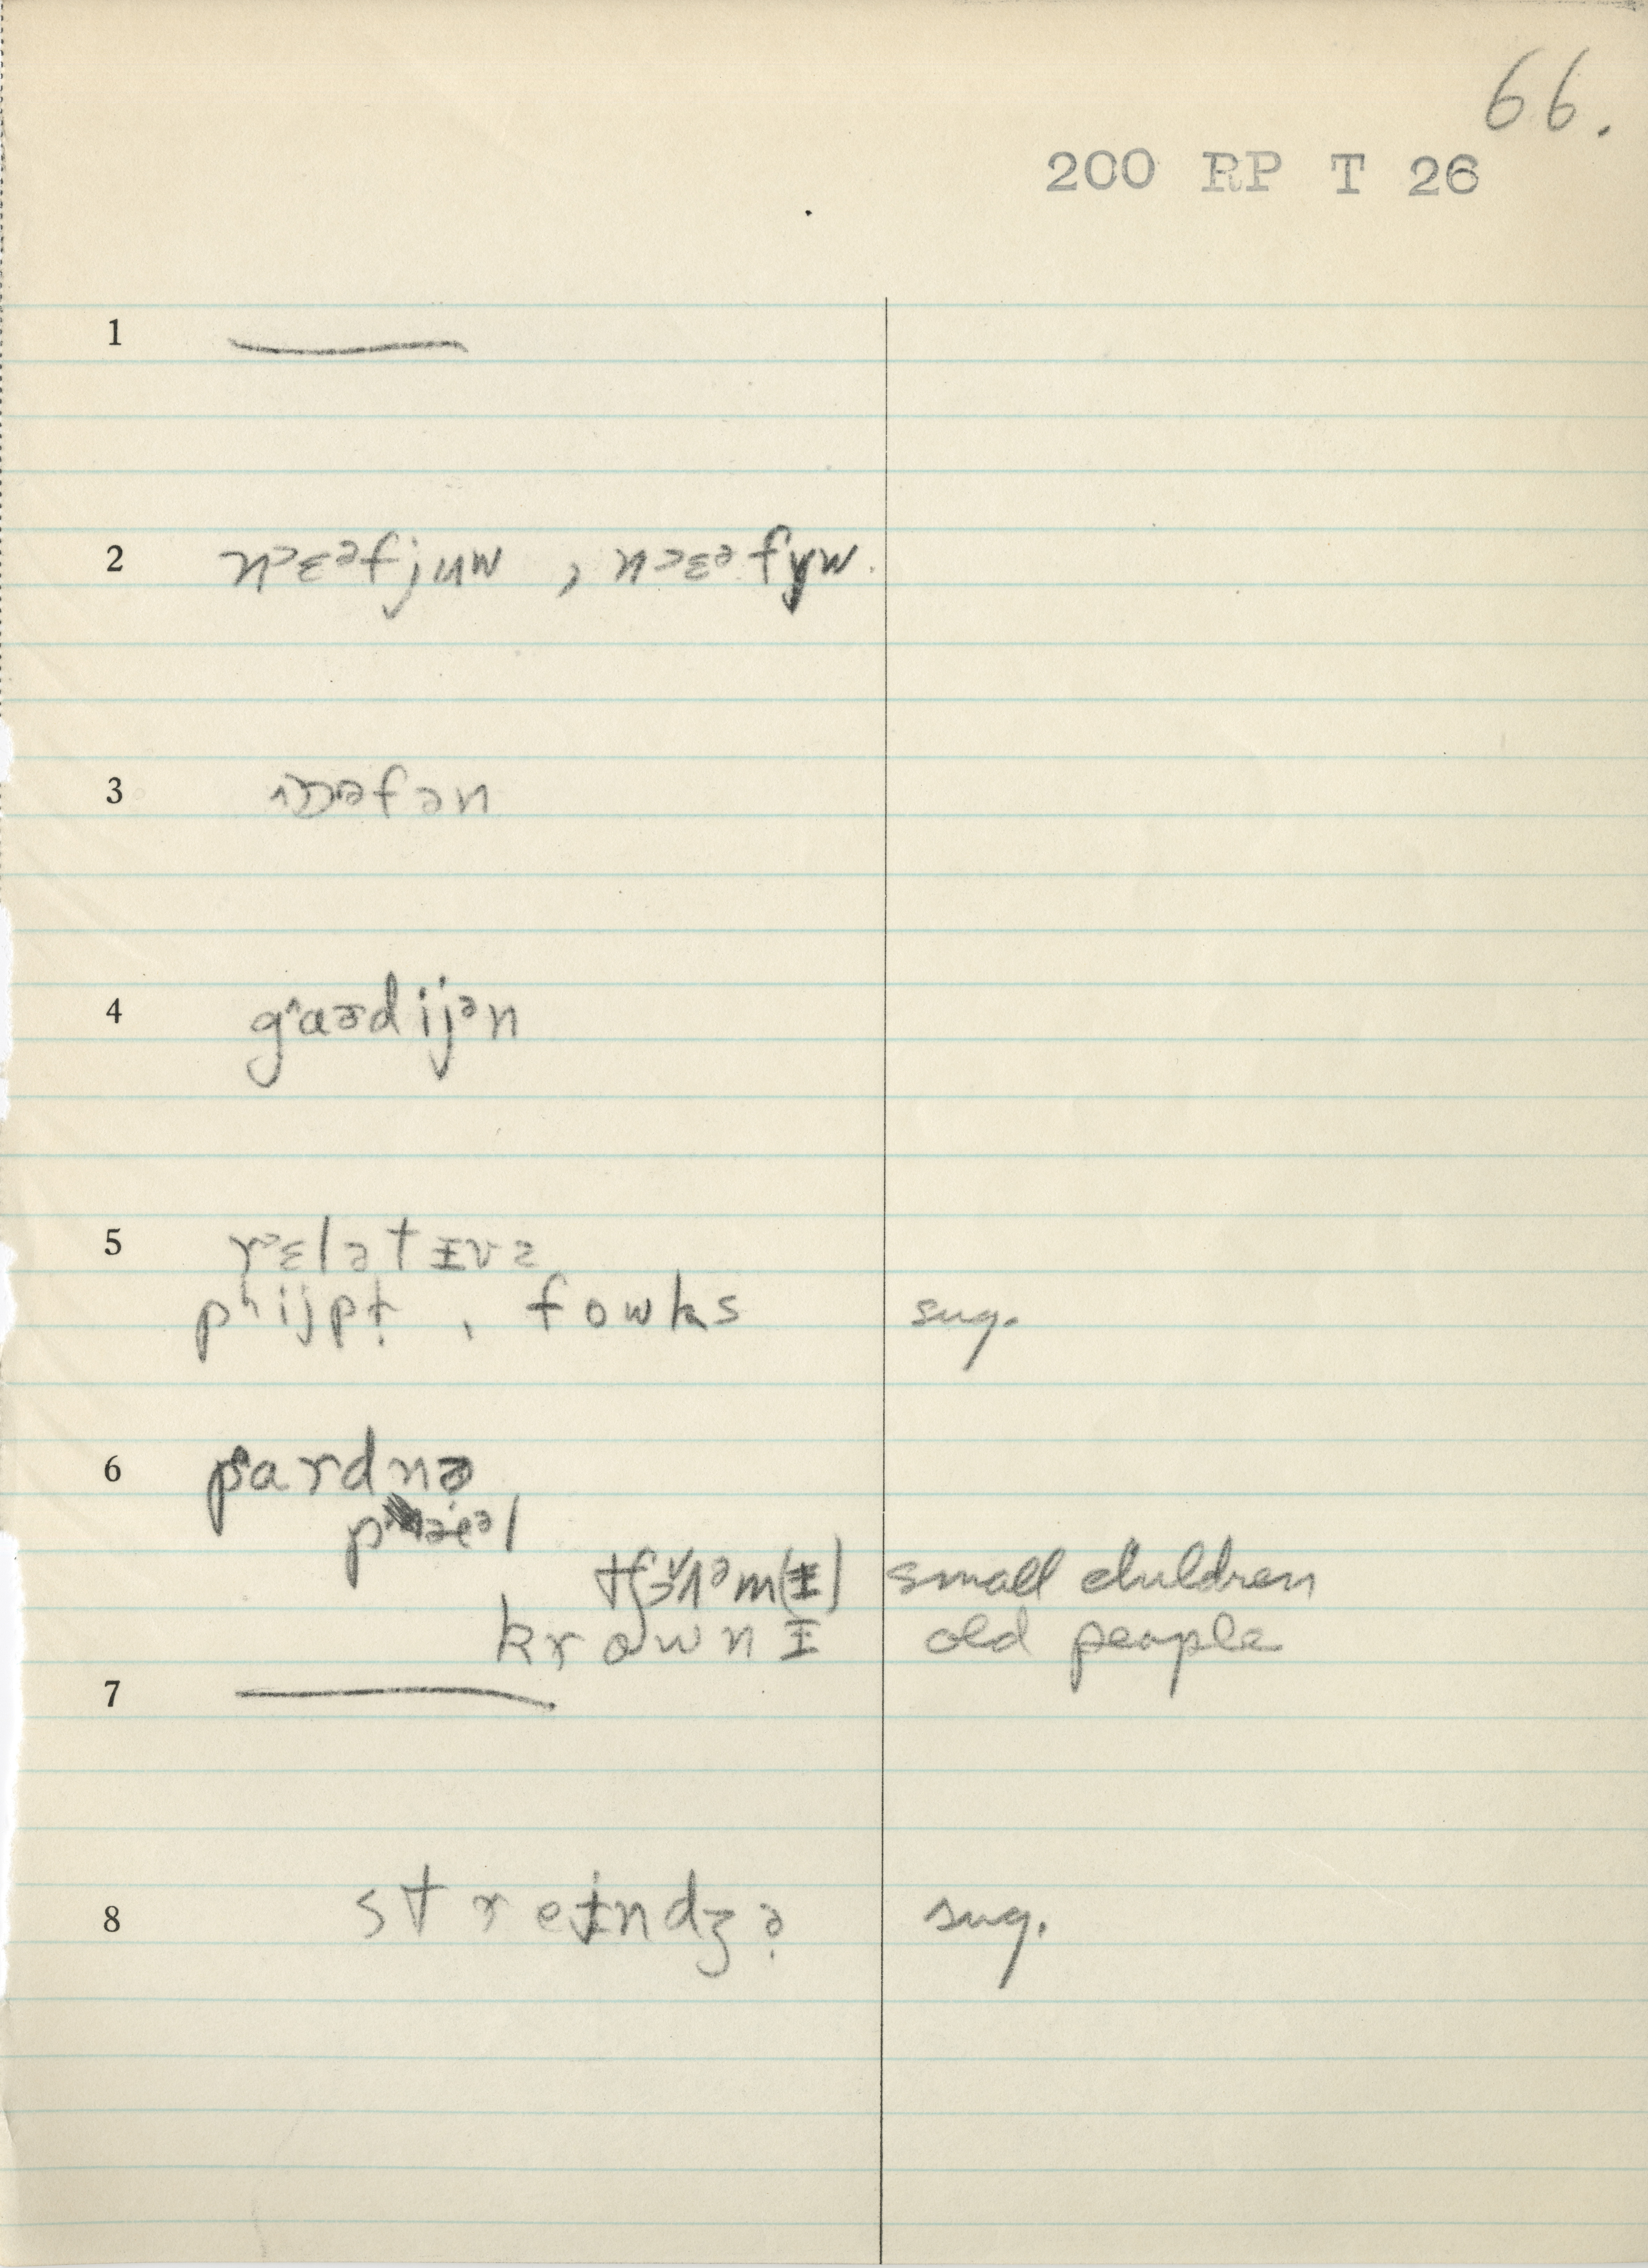 66.
200 RP T 26
1
2 n˃ɛᵊfjuw , n˃ɛᵊfyw.
3
4 g˄aɚdijᵊn
5 r˃ɛlətɪvz
pʰijpɫ̩ , fowks sug.
6 p˄ardnɚ
tʃɜ˅ʌᵊm(ɪ) small children
krownɪ old people
7
8 streɪndʒə̣ sug.